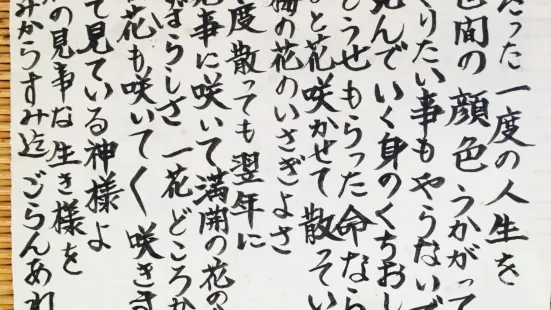 たった一度の人生を
世間の顔色うかがって
やりたい事もやらないで
死んでいく身のくちおし
どうせもらった命なら
と花咲かせて散ってい
桜の花のいさぎよさ
度散っても翌年に
見事に咲いて満開の花の
ばらしさ一花どころか
花も咲いてく咲きま
て見ている神様よ
の見事な生き様を
みからすみ迄ごらんあれ